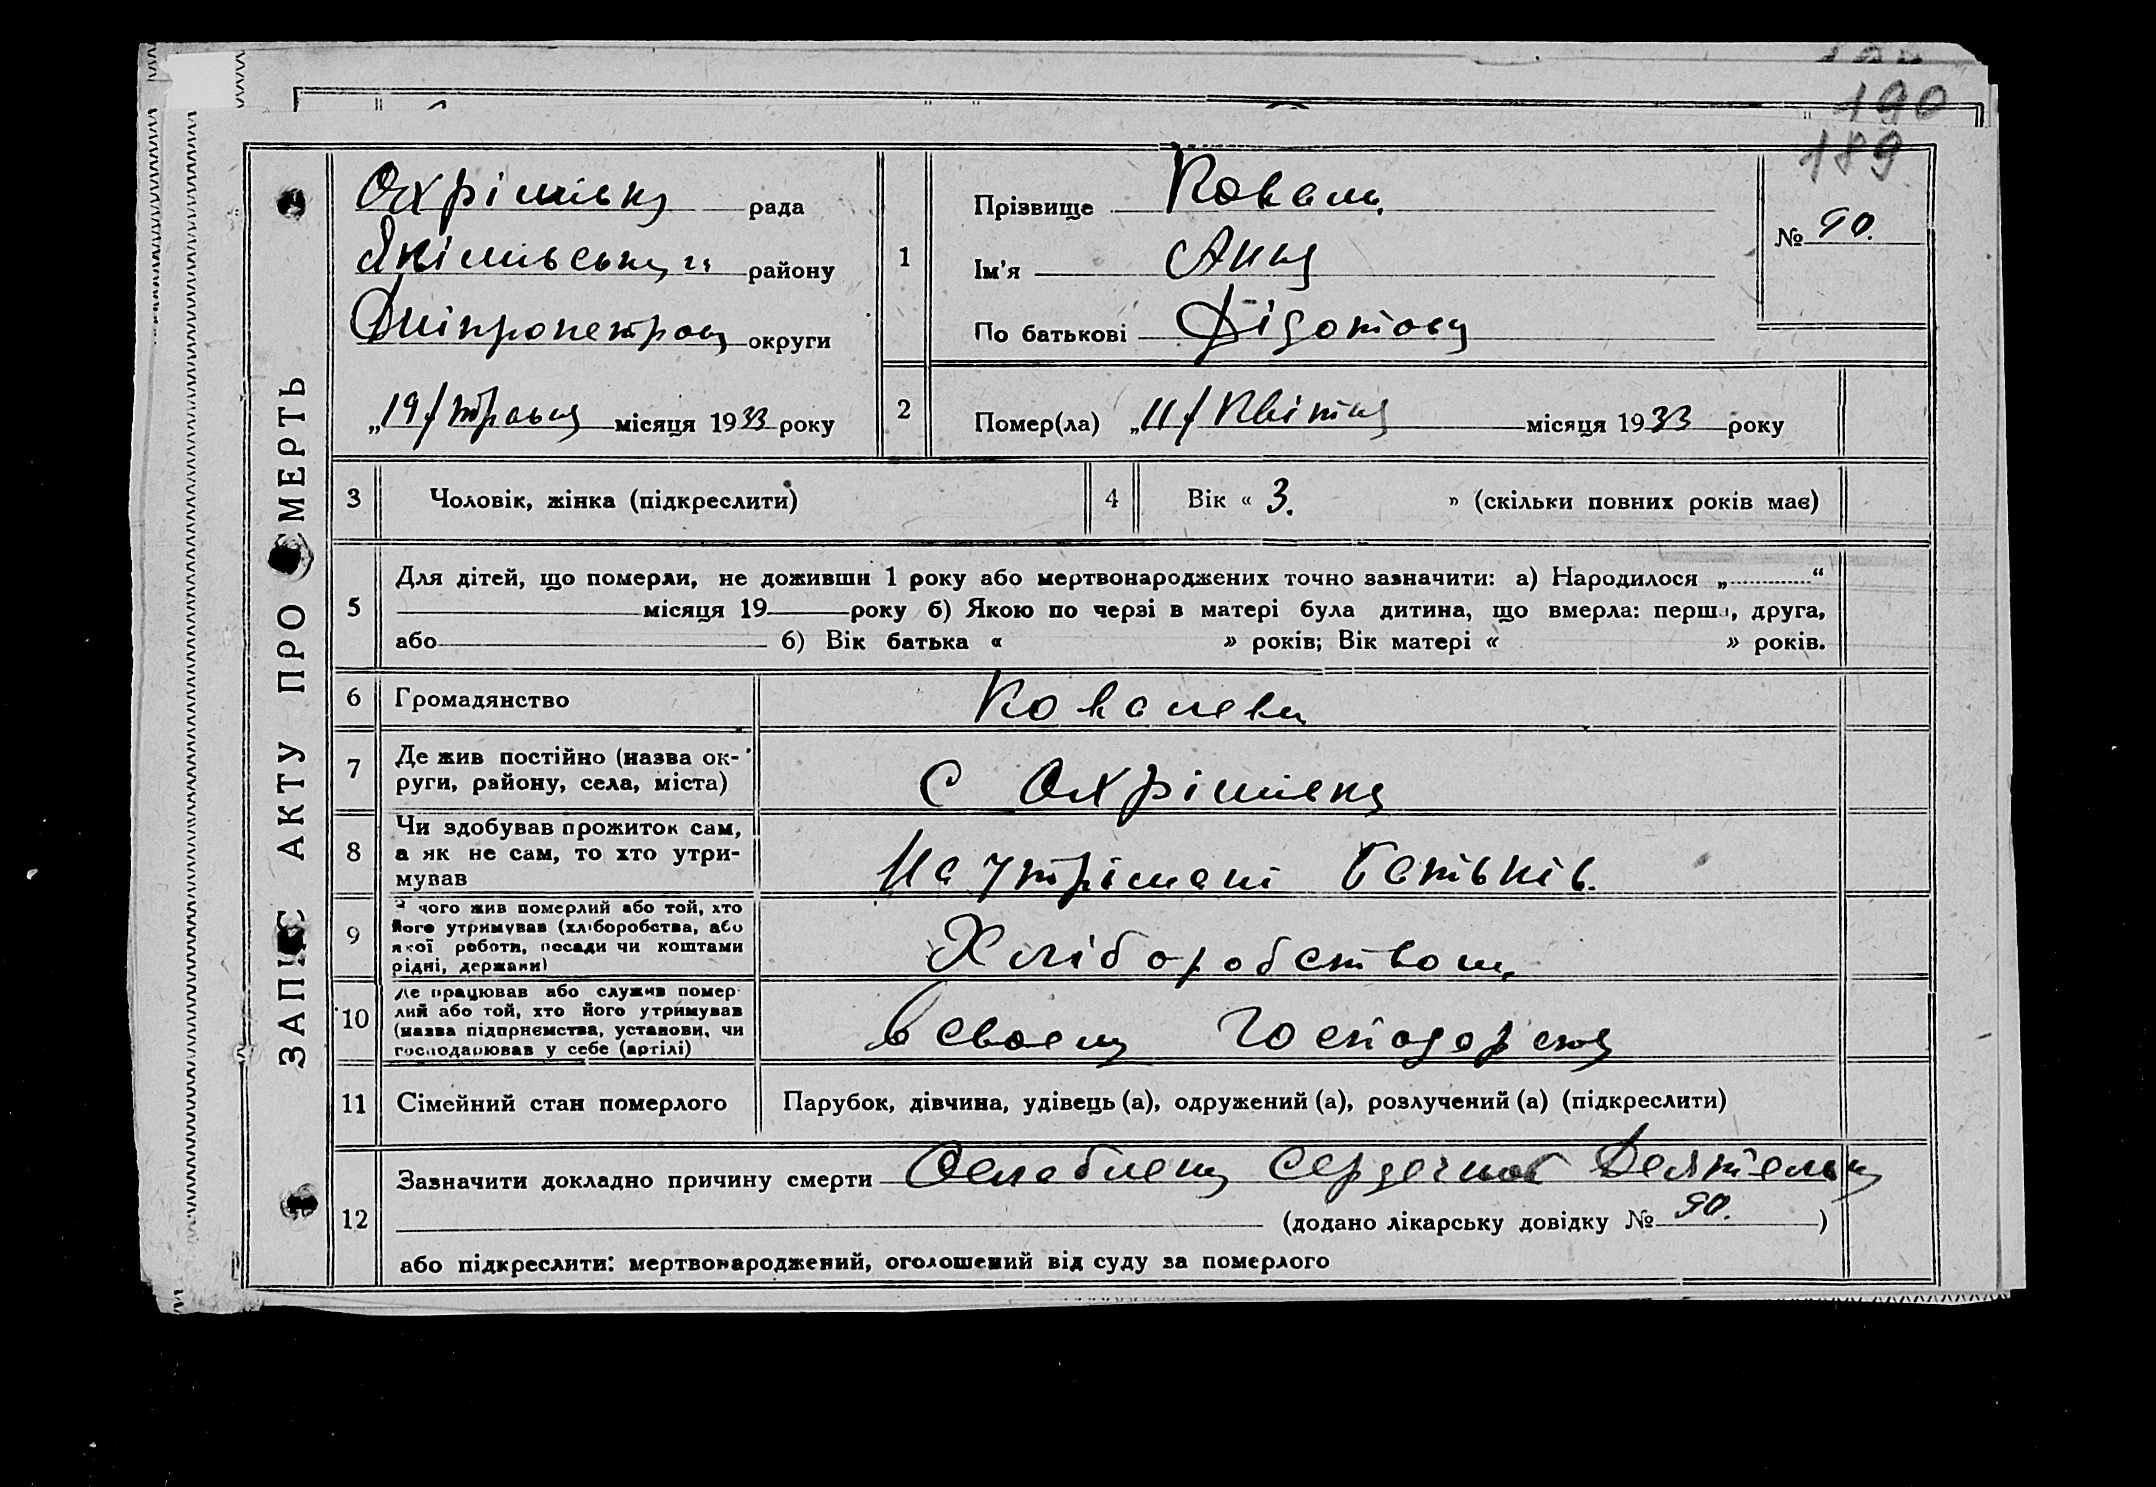 190
189
ЗАПИС АКТУ ПРО СМЕРТЬ
Охрімівка рада
Якімівського району
Дніпропетров округи
„19/ травня місяця 1933 року
1
Прізвище Коваль
Ім'я Анна
По батькові
№ 90.
2
Помер(ла) „11/ Квітня місяця 1933 року
3
Чоловік, жінка (підкреслити)
4
Вік « 3. » (скільки повних років має)
5
Для дітей, що померли, не доживши 1 року або мертвонароджених точно зазначити: а) Народилося „ “
місяця 19 року б) Якою по черзі в матері була дитина, що вмерла: перша, друга,
або б) Вік батька « » років; Вік матері « » років.
6
Громадянство
7
Де жив постійно (назва ок-
руги, району, села, міста)
с Охрімівка
8
Чи здобував прожиток сам,
а як не сам, то хто утри-
мував
На утрімані батьків.
9
З чого жив померлий або той, хто
його утримував (хліборобства, або
якої роботи, посади чи коштами
рідні, держави)
Хліборобством
10
Де працював або служив помер-
лий або той, хто його утримував
(назва підприємства, установи, чи
господарював у себе (артілі)
в своем господарстві
11
Сімейний стан померлого
Парубок, дівчина, удівець (а), одружений (а), розлучений (а) (підкреслити)
12
Зазначити докладно причину смерти Ослаблені сердечної Деятельн
(додано лікарську довідку № 90. )
або підкреслити: мертвонароджений, оголошений від суду за померлого